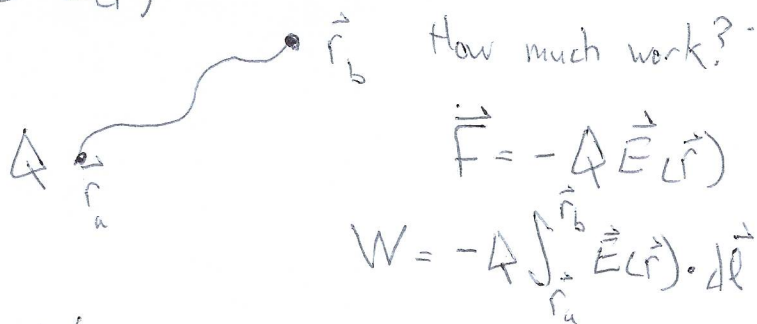 r⃗_b How much work?
F⃗ = - Q E⃗(r⃗)
Q r⃗_a
W = - Q ∫_{r⃗_a}^{r⃗_b} E⃗(r⃗) · dℓ⃗